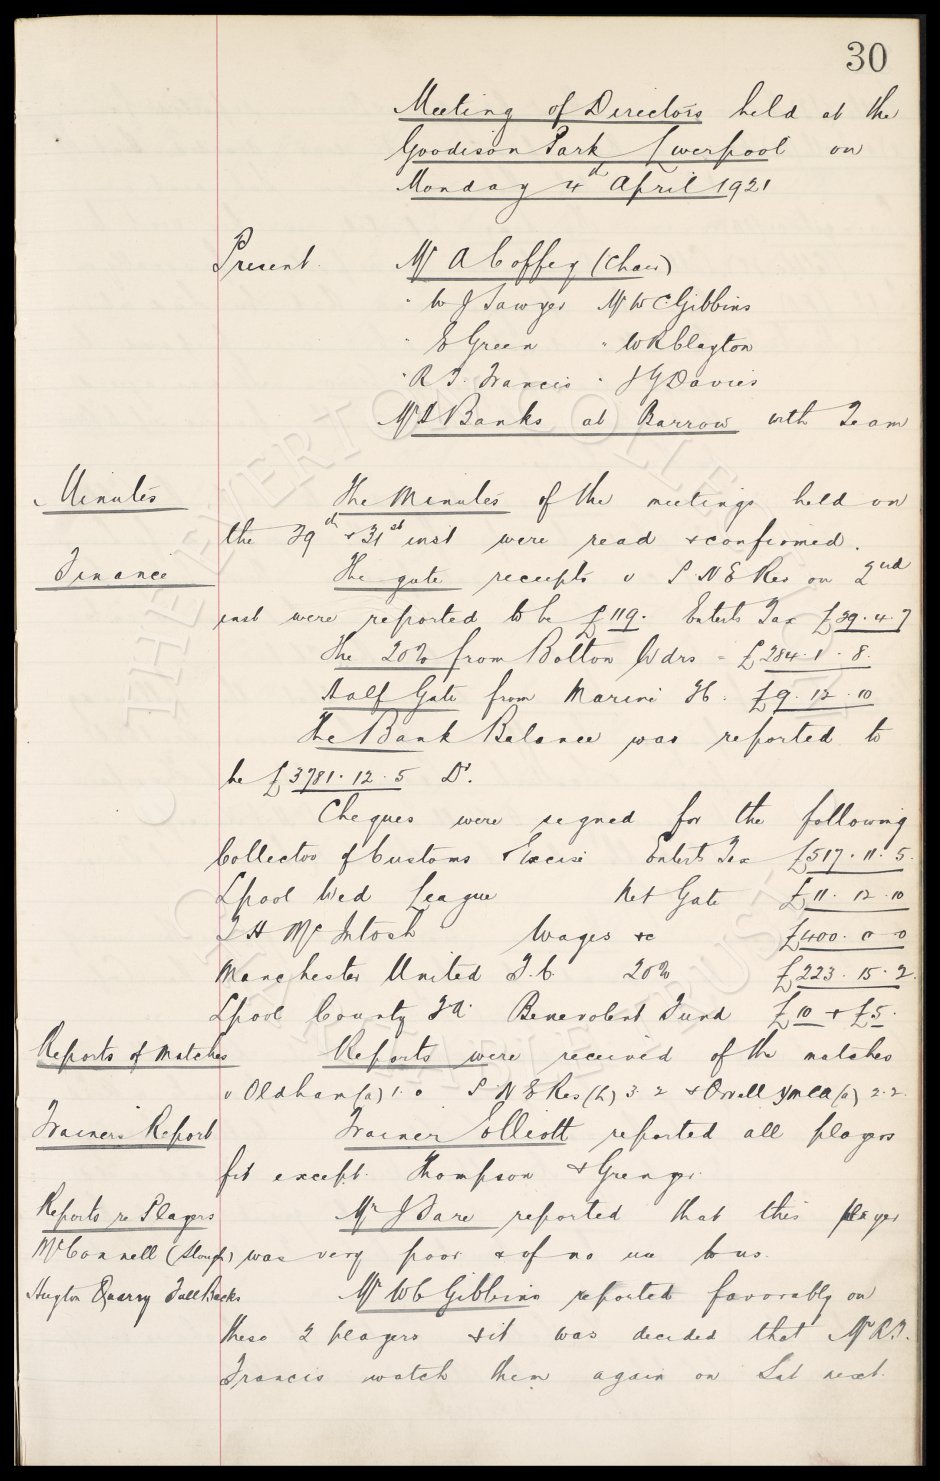 30
Meeting of Directors held at the
Goodison Park Liverpool on
Monday 4th April 1921
Present Mr A Coffey (Chair)
" W J Sawyer Mr W C Gibbins
" E Green " W R Clayton
" R T. Francis " J G Davies
Mr D Banks at Barrow with Team
Minutes The Minutes of the meetings held on
the 29th & 31st inst were read & confirmed.
Finance The gate receipts v S N E Res on 2nd
inst were reported to be £119. Enterts Tax £39.4.7
The 20% from Bolton Wdrs = £284.1.8.
Half Gate from Marine Fc. £9.12.10
The Bank Balance was reported to
be £3781.12.5 Dr.
Cheques were signed for the following
Collector of Customs & Excise Enterts Tax £517.11.5.
Lpool Wed League Net Gate £11.12.10
T H McIntosh Wages &c £400.0-0
Manchester United F.C. 20% £223.15.2.
Lpool County FA. Benevolent Fund £10 + £5.
Reports of Matches Reports were received of the matches
v Oldham (a) 1.0 S N E Res (h) 3.2 & Orrell YMCA (a) 2.2.
Trainers Report Trainer Elliott reported all players
fit except. Thompson & Grenyer.
Reports re Players Mr J Bare reported that this player
McConnell (Slough) was very poor & of no use to us.
Huyton Quarry Full Backs Mr W C Gibbins reported favorably on
these 2 players & it was decided that Mr R.T.
Francis watch them again on Sat next.
THE EVERTON COLLECTION
CHARITABLE TRUST